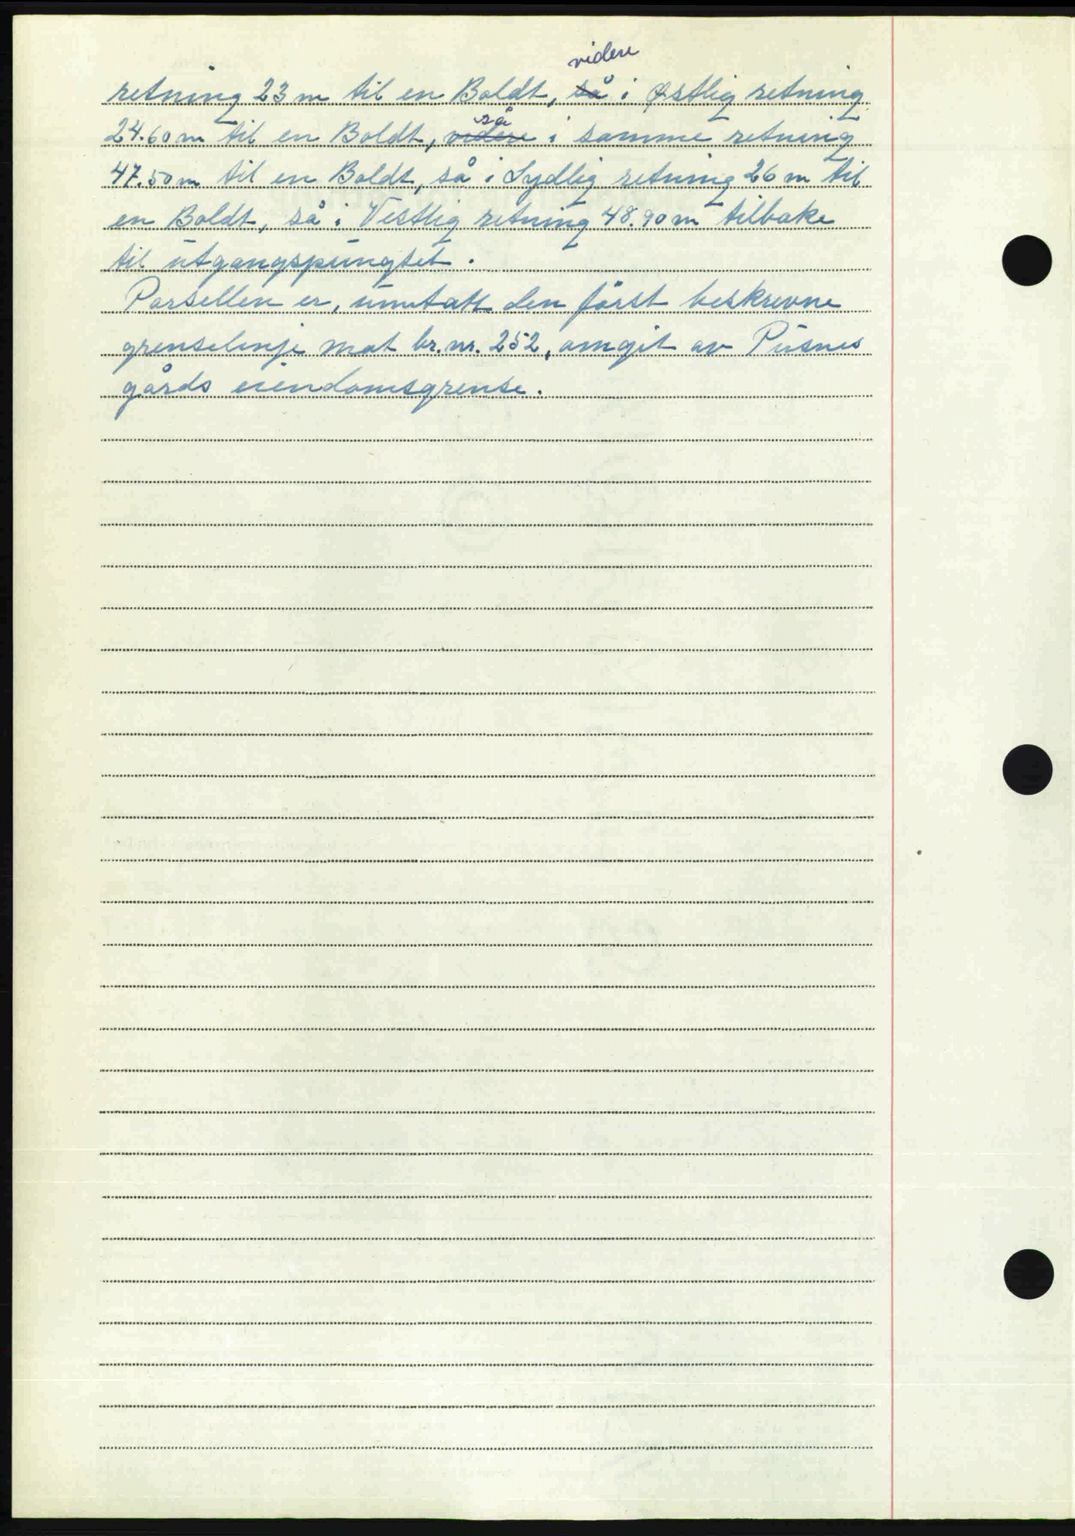 retning 23 m til en Boldt, så videre i Østlig retning
24.60 m til en Boldt, videre så i samme retning
47.50 m til en Boldt, så i Sydlig retning 26 m til
en Boldt, så i Vestlig retning 48.90 m tilbake
til utgangspungtet.
Parsellen er, unntatt den først beskrevne
grenselinje mot br. nr. 252, omgit av Pusnes
gårds eiendomsgrense.